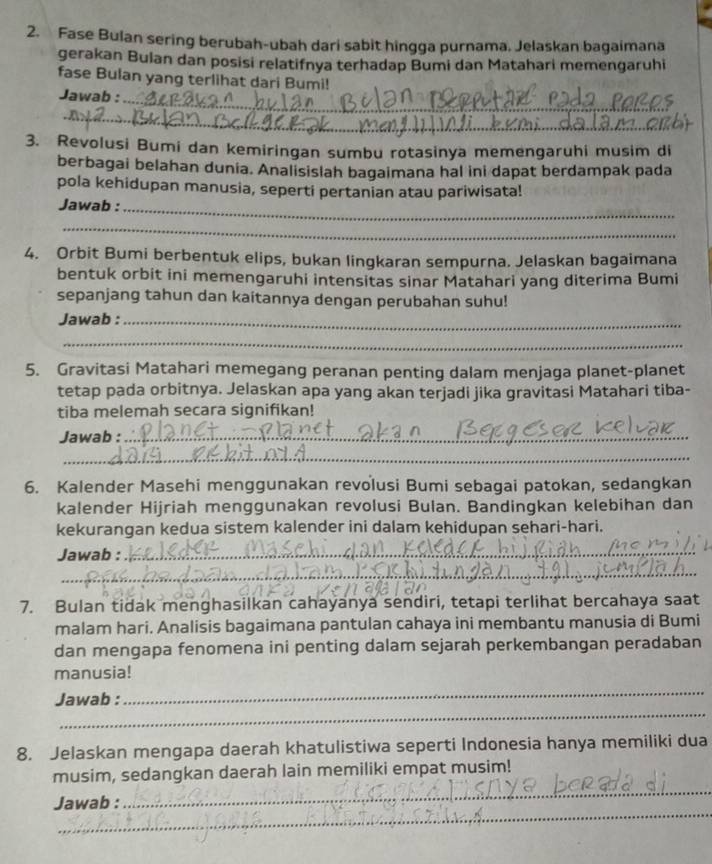 2. Fase Bulan sering berubah-ubah dari sabit hingga purnama. Jelaskan bagaimana
gerakan Bulan dan posisi relatifnya terhadap Bumi dan Matahari memengaruhi
fase Bulan yang terlihat dari Bumi!
Jawab : gerakan bulan Bulan Berputar pada Poros
nya, Bulan Bergerak mengililingi bumi dalam orbit
3. Revolusi Bumi dan kemiringan sumbu rotasinya memengaruhi musim di
berbagai belahan dunia. Analisislah bagaimana hal ini dapat berdampak pada
pola kehidupan manusia, seperti pertanian atau pariwisata!
Jawab :
4. Orbit Bumi berbentuk elips, bukan lingkaran sempurna. Jelaskan bagaimana
bentuk orbit ini memengaruhi intensitas sinar Matahari yang diterima Bumi
sepanjang tahun dan kaitannya dengan perubahan suhu!
Jawab :
5. Gravitasi Matahari memegang peranan penting dalam menjaga planet-planet
tetap pada orbitnya. Jelaskan apa yang akan terjadi jika gravitasi Matahari tiba-
tiba melemah secara signifikan!
Jawab : planet-planet akan Bergeser keluar
dari orbit nya
6. Kalender Masehi menggunakan revolusi Bumi sebagai patokan, sedangkan
kalender Hijriah menggunakan revolusi Bulan. Bandingkan kelebihan dan
kekurangan kedua sistem kalender ini dalam kehidupan sehari-hari.
Jawab : keleder Masehi dan keleder hijriah memilik
dalam perhitungan, tgl, jumplah
hari, dan
7. Bulan tidak menghasilkan cahayanya sendiri, tetapi terlihat bercahaya saat
malam hari. Analisis bagaimana pantulan cahaya ini membantu manusia di Bumi
dan mengapa fenomena ini penting dalam sejarah perkembangan peradaban
manusia!
Jawab :
8. Jelaskan mengapa daerah khatulistiwa seperti Indonesia hanya memiliki dua
musim, sedangkan daerah lain memiliki empat musim!
Jawab : berada di